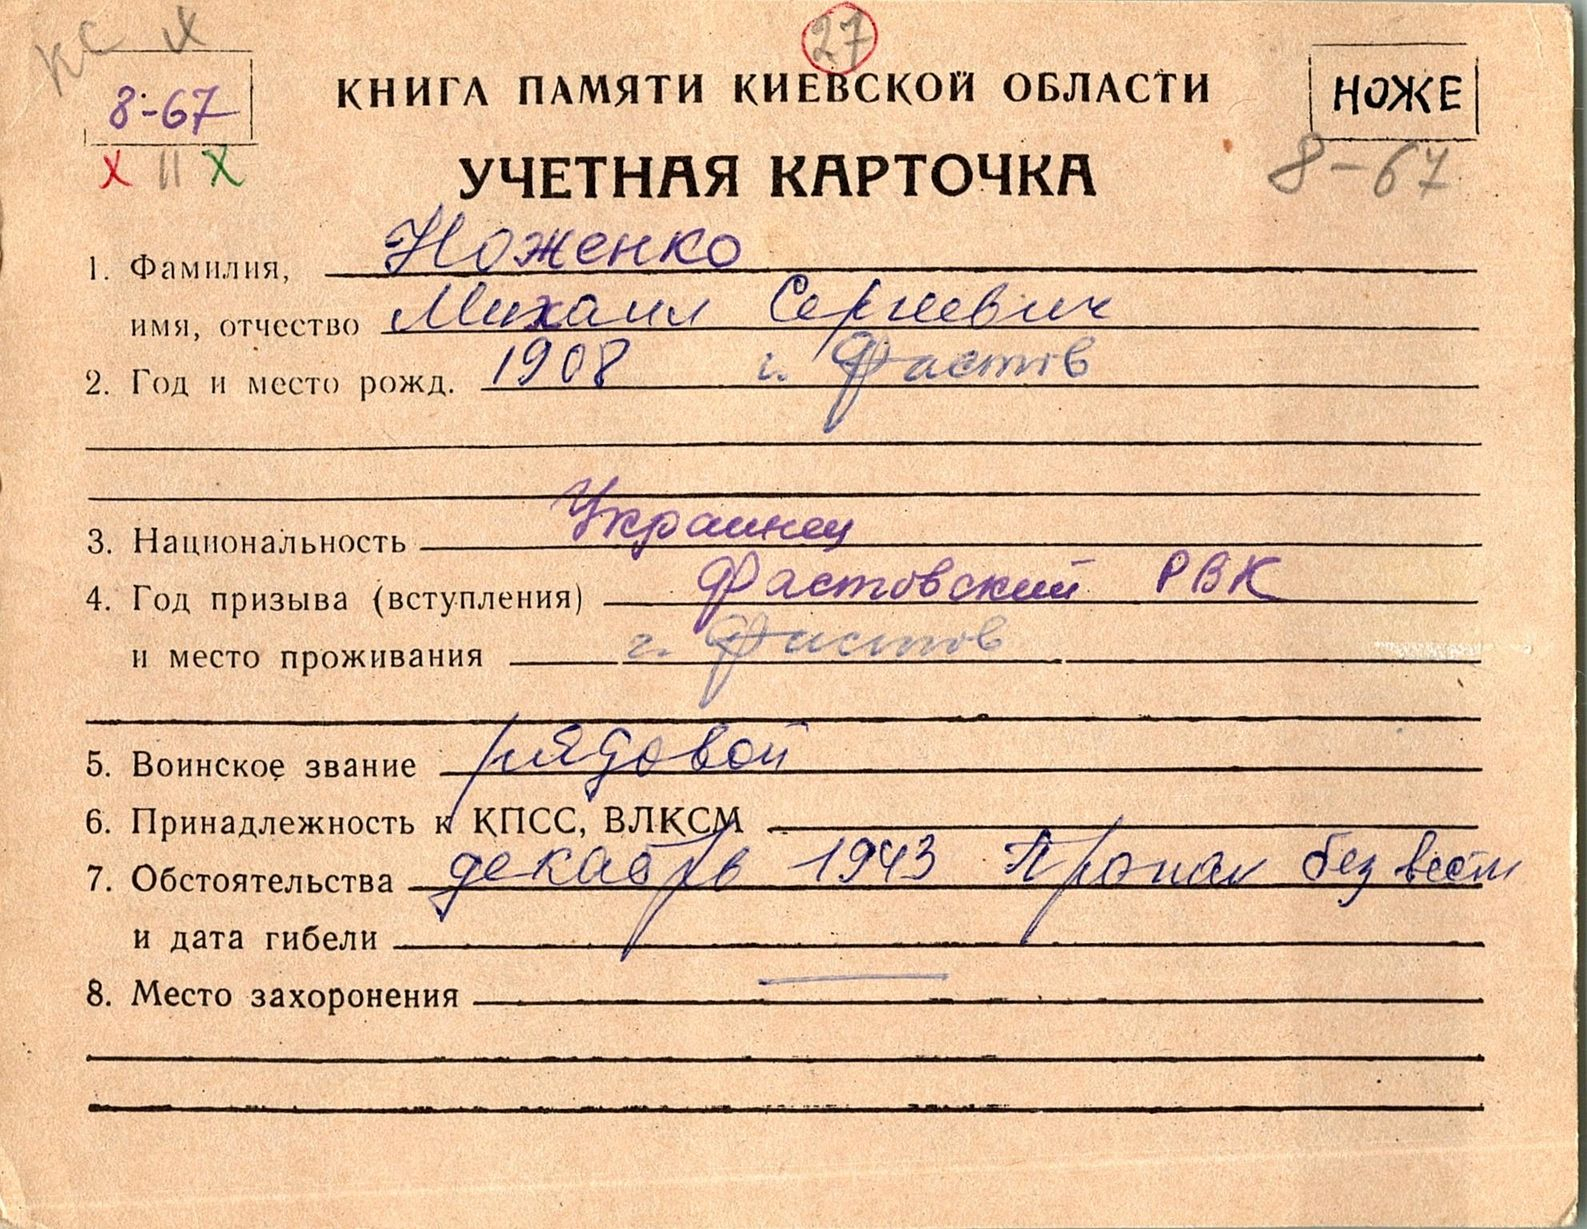 КС х
27
8-67
КНИГА ПАМЯТИ КИЕВСКОЙ ОБЛАСТИ
НОЖЕ
х II х
УЧЕТНАЯ КАРТОЧКА
8-67
1. Фамилия, Ноженко
имя, отчество Михаил Сергиевич
2. Год и место рожд. 1908 г. Фастов
3. Национальность Украинец
4. Год призыва (вступления) Фастовский РВК
и место проживания г. Фастов
5. Воинское звание рядовой
6. Принадлежность к КПСС, ВЛКСМ
7. Обстоятельства декабрь 1943 Пропал без вести
и дата гибели
8. Место захоронения